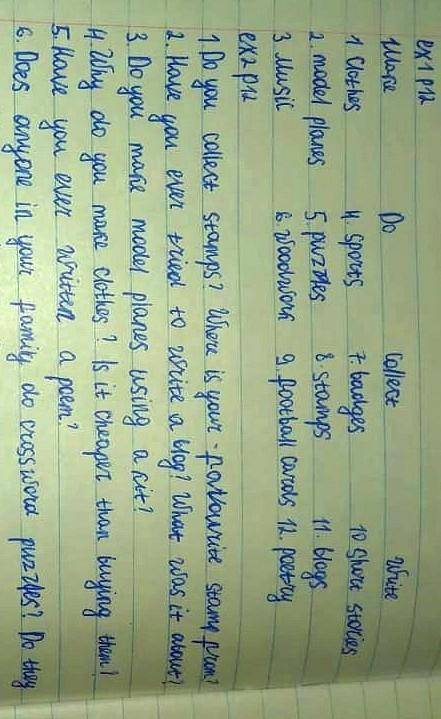 ex1 p12
Make Do Collect Write
1. Clothes 4. sports 7. badges 10 Short stories
2. model planes 5. puzzles 8. stamps 11. blogs
3. Music 6. woodwork 9. football cards 12. poetry
ex2 p12
1. Do you collect stamps? Where is your favourite stamp from?
2. Have you ever tried to write a blog? What was it about?
3. Do you make model planes using a kit?
4. Why do you make clothes? Is it cheaper than buying them?
5. Have you ever written a poem?
6. Does anyone in your family do crossword puzzles? Do they